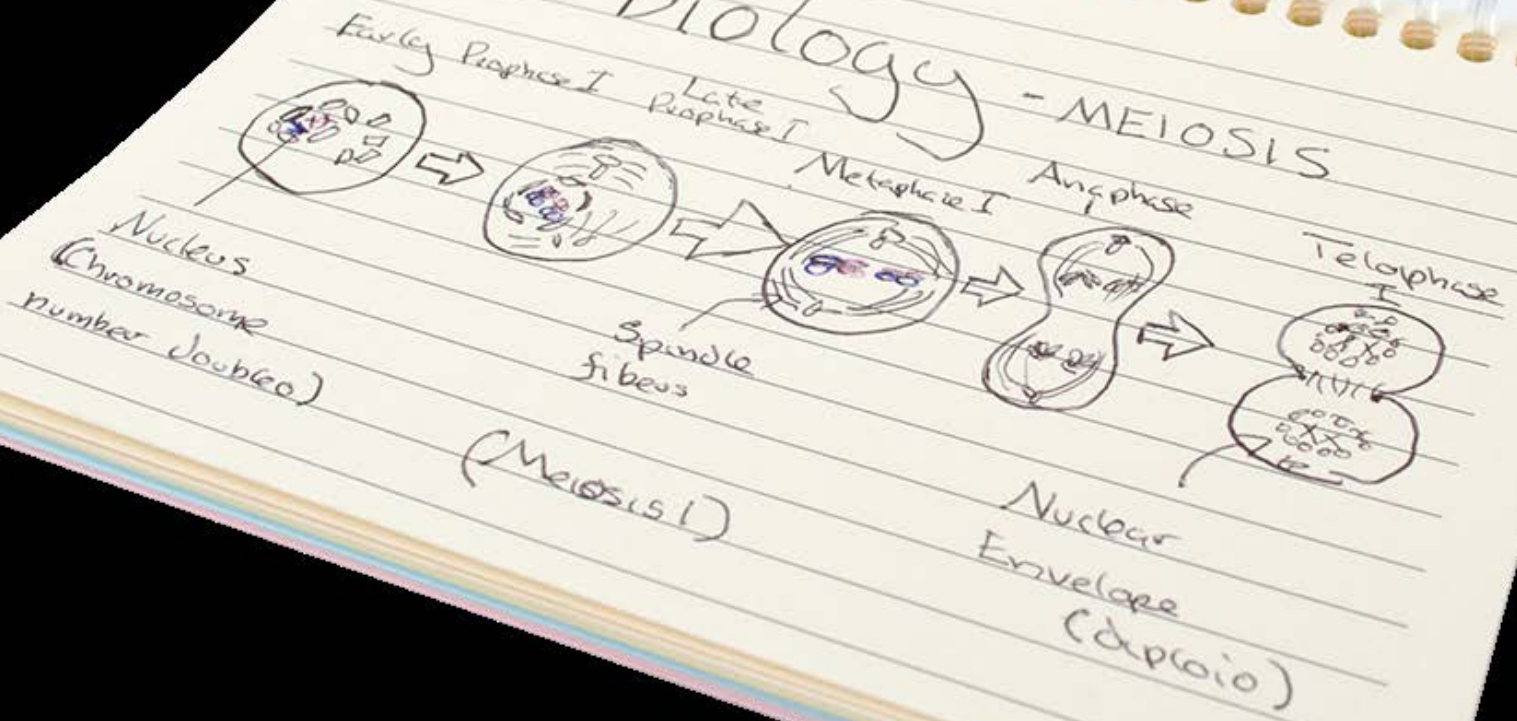 Biology - MEIOSIS
Early Prophase I
Late
Prophase I
Metaphase I
Anaphase
Telophase
I
Nucleus
(Chromosome
number doubled)
Spindle
fibers
(Meiosis I)
Nuclear
Envelope
(diploid)